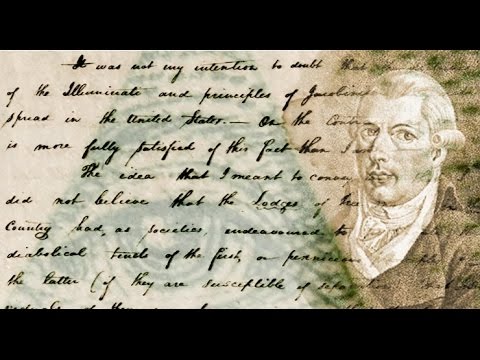 It was not my intention to doubt that
of the Illuminati and principles of Jacobin
spread in the United States.— On the Contra
is more fully satisfied of this fact than I
The idea that I meant to convey
did not believe that the Lodges of
Country had, as societies, endeavoured to
diabolical tenets of the first, or pernicious
the latter (if they are susceptible of separation